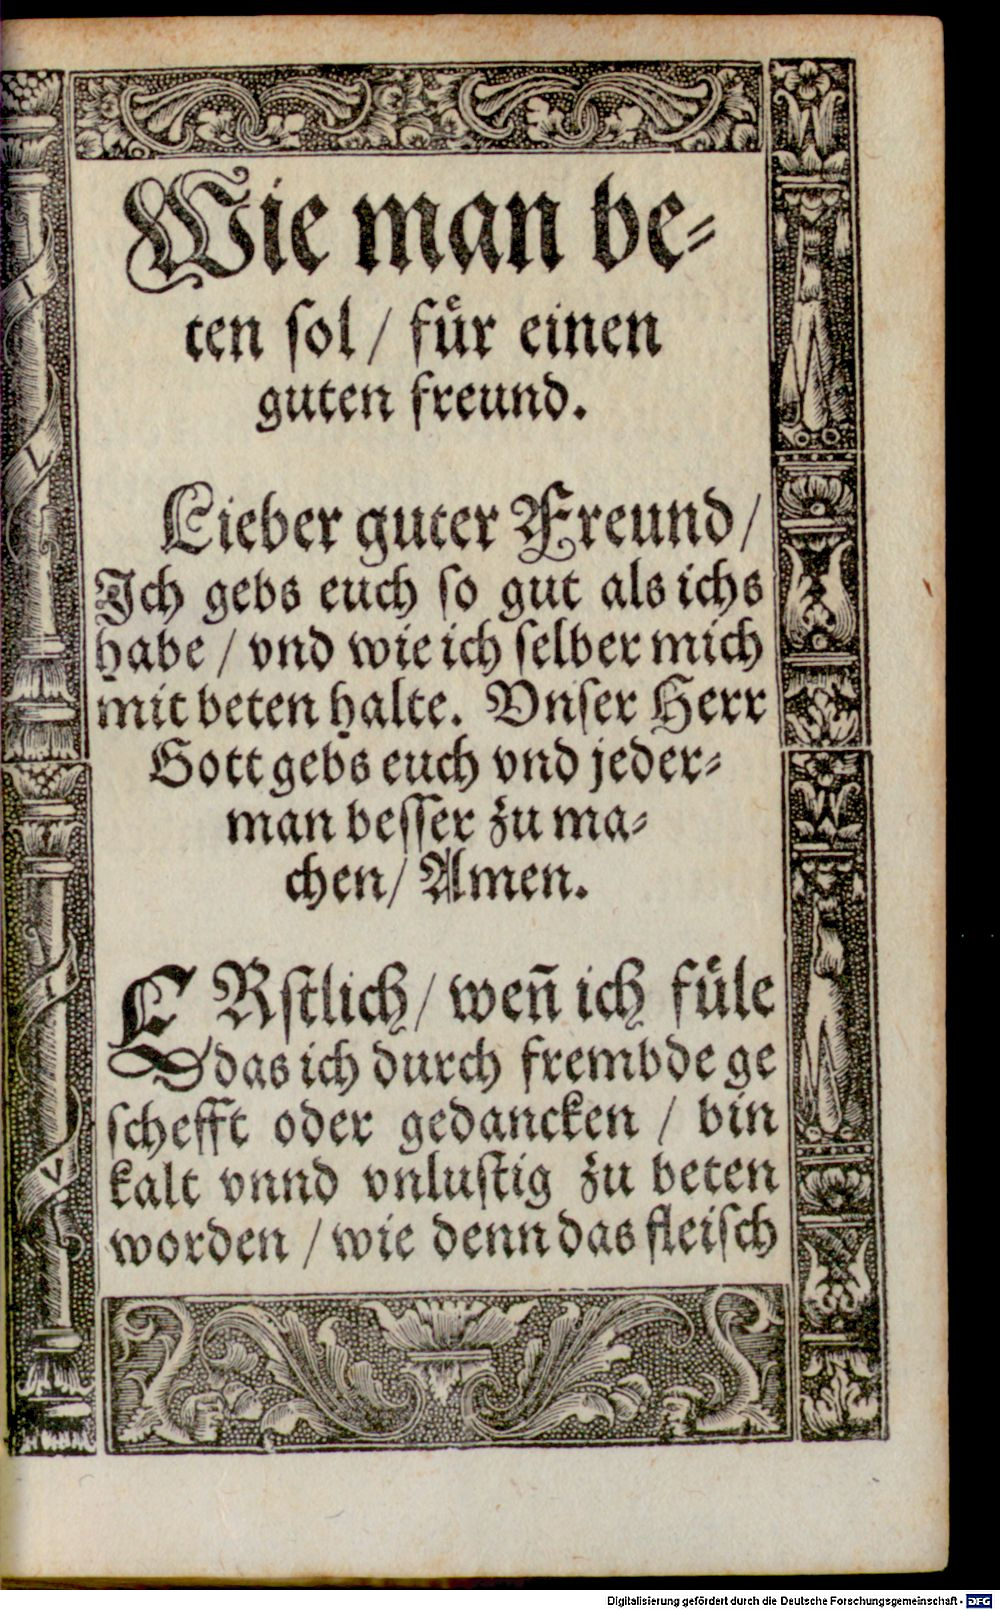 Wie man be⸗
ten ſol/ fuͤr einen
guten freund.
Lieber guter Freund/
Ich gebs euch ſo gut als ichs
habe / vnd wie ich ſelber mich
mit beten halte. Vnſer Herr
Gott gebs euch vnd jeder⸗
man beſſer zu ma⸗
chen/ Amen.
ERſtlich/ weñ ich fuͤle
das ich durch frembde ge
ſchefft oder gedancken / bin
kalt vnnd vnluſtig zu beten
worden / wie denn das fleiſch
Digitalisierung gefördert durch die Deutsche Forschungsgemeinschaft - DFG